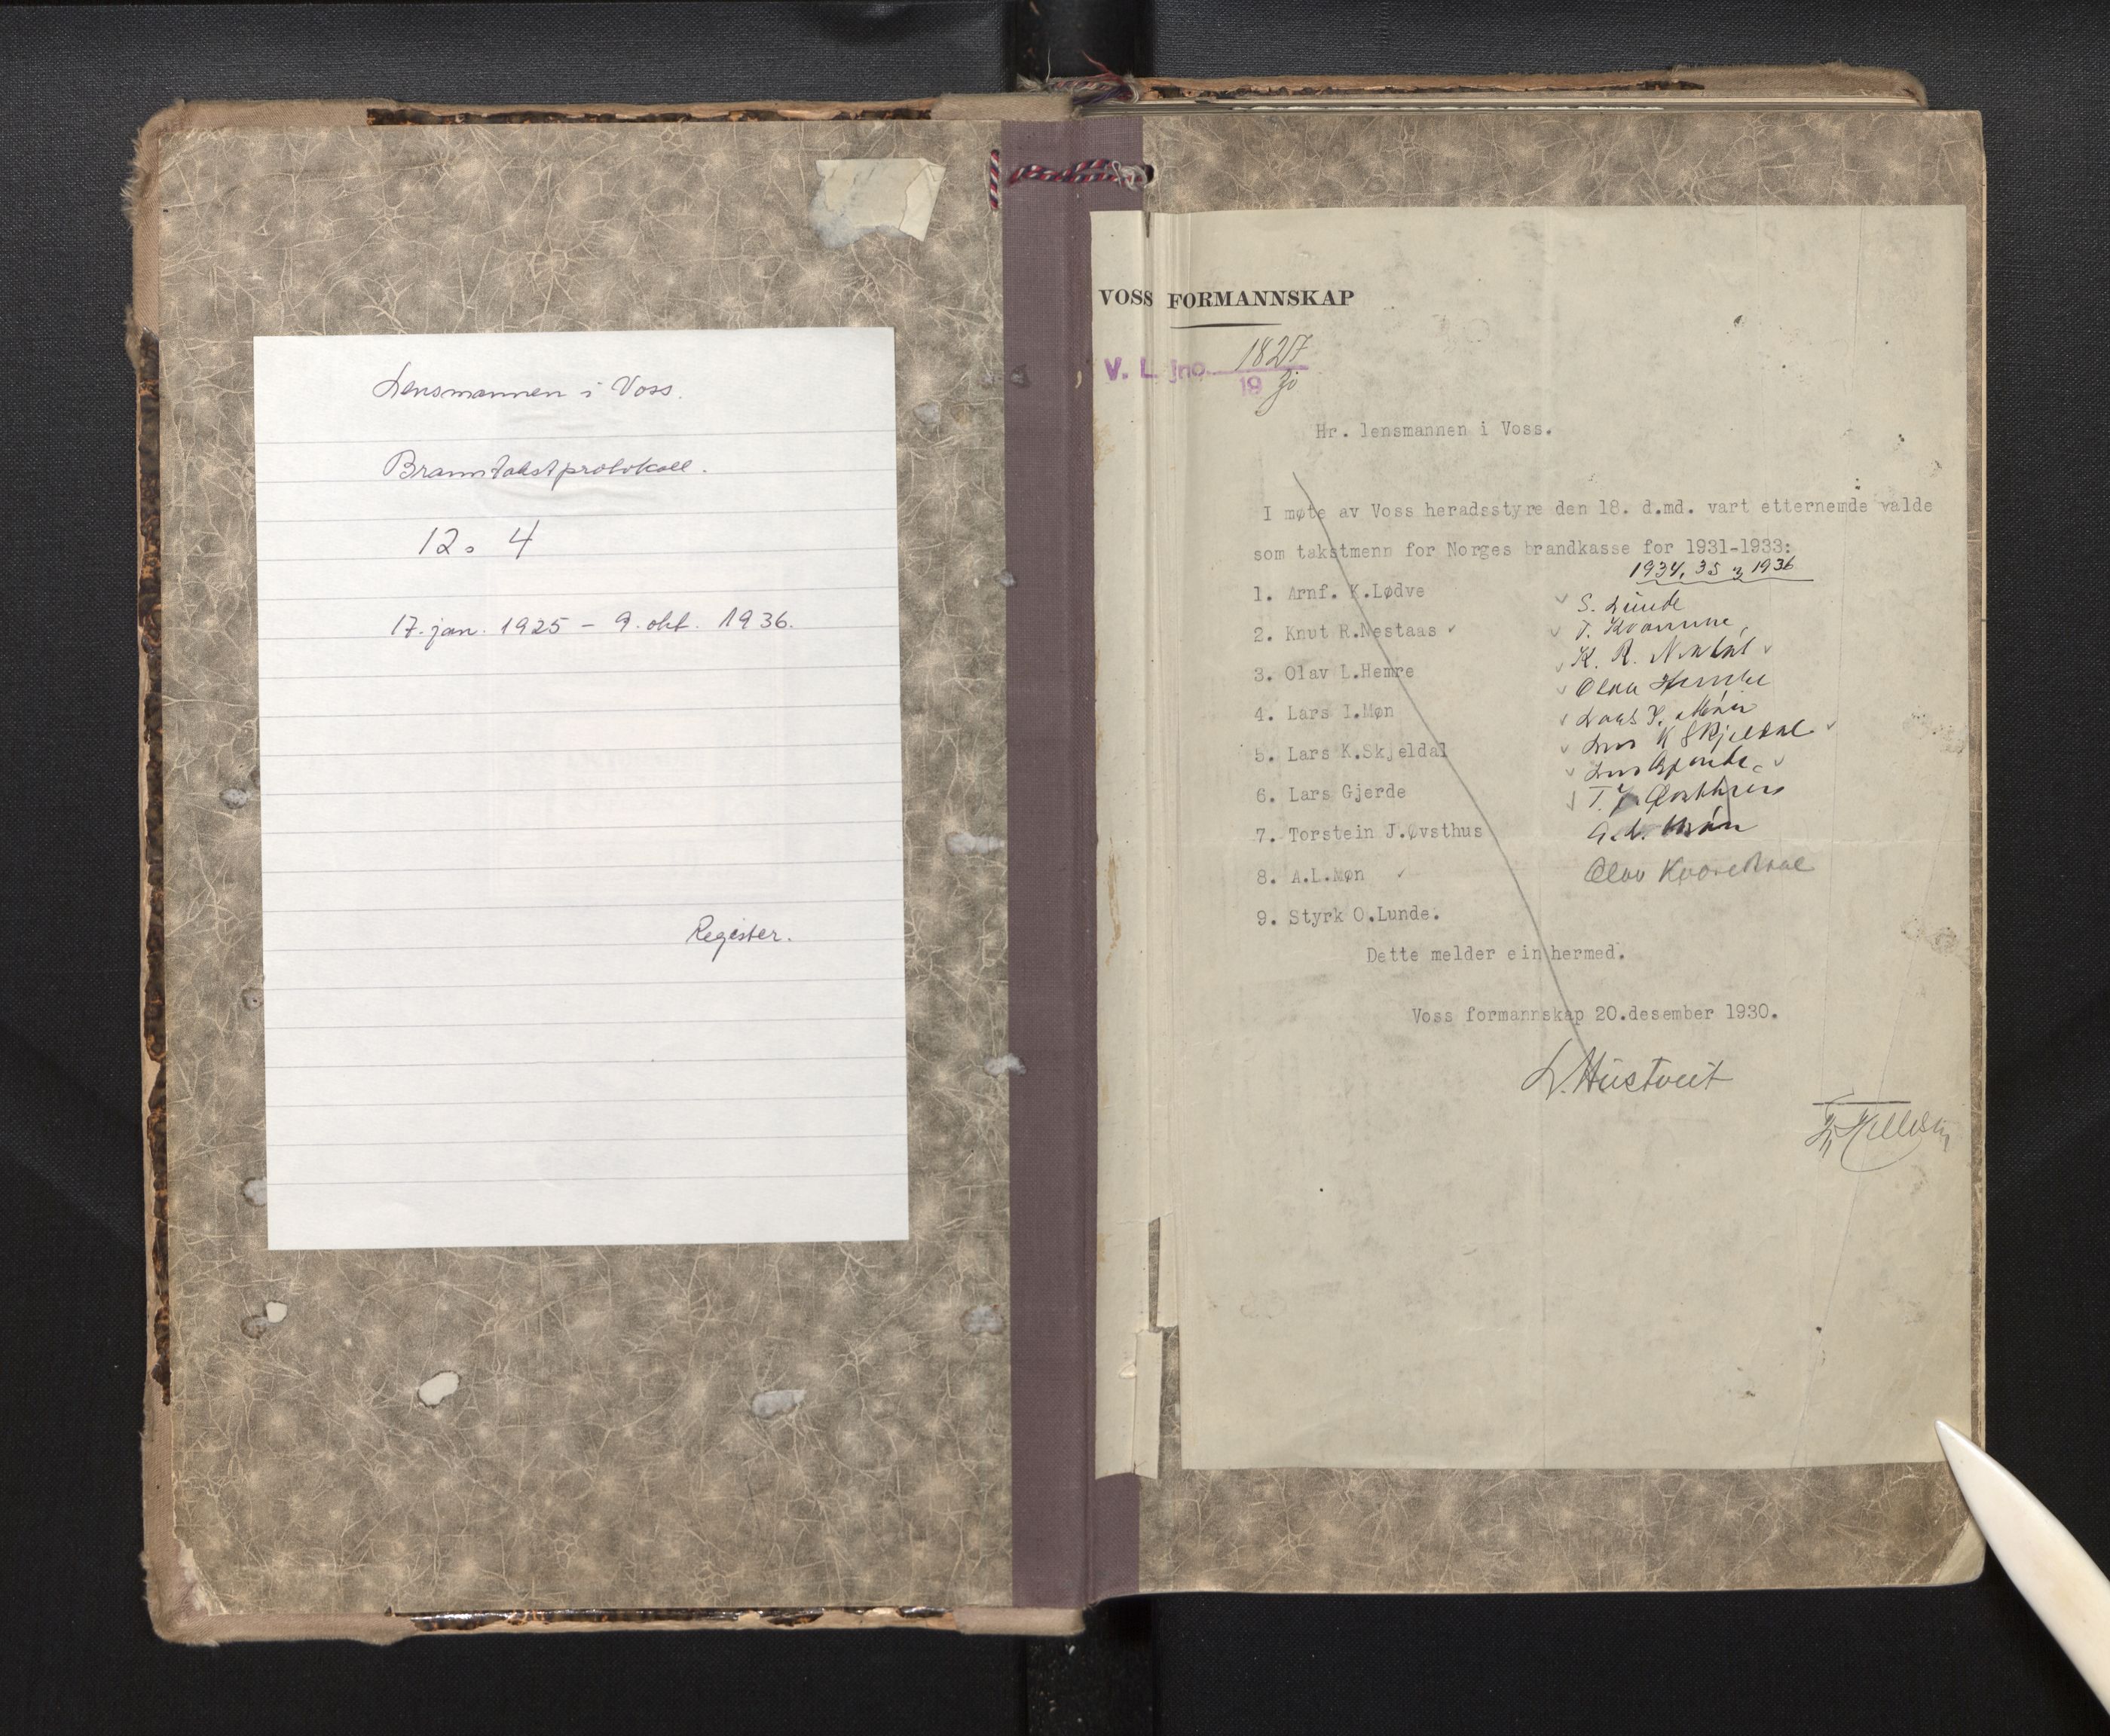 Lensmannen i Voss.
Branntakstprotokoll.
12. 4
17. jan. 1925 - 9. okt. 1936.
Register.
VOSS FORMANNSKAP
V. L. jno. 1827
19 30
Hr. lensmannen i Voss.
I møte av Voss heradsstyre den 18. d.md. vart etternemde valde
som takstmenn for Norges brandkasse for 1931-1933:
1934, 35 & 1936
1. Arnf. K.Lødve
S. Lunde
2. Knut R.Nestaas ✓
T. Kvamme
3. Olav L.Hemre
K. R.
4. Lars I.Møn
Olav Hemre
5. Lars K.Skjeldal
Lars I. Møn
6. Lars Gjerde
Lars K Skjeldal
7. Torstein J.Øvsthus
Lars Gjerde
8. A.L.Møn ✓
T. J.
9. Styrk O.Lunde.
A. L. Møn
Olav
Dette melder ein hermed.
Voss formannskap 20.desember 1930.
L. Hustveit